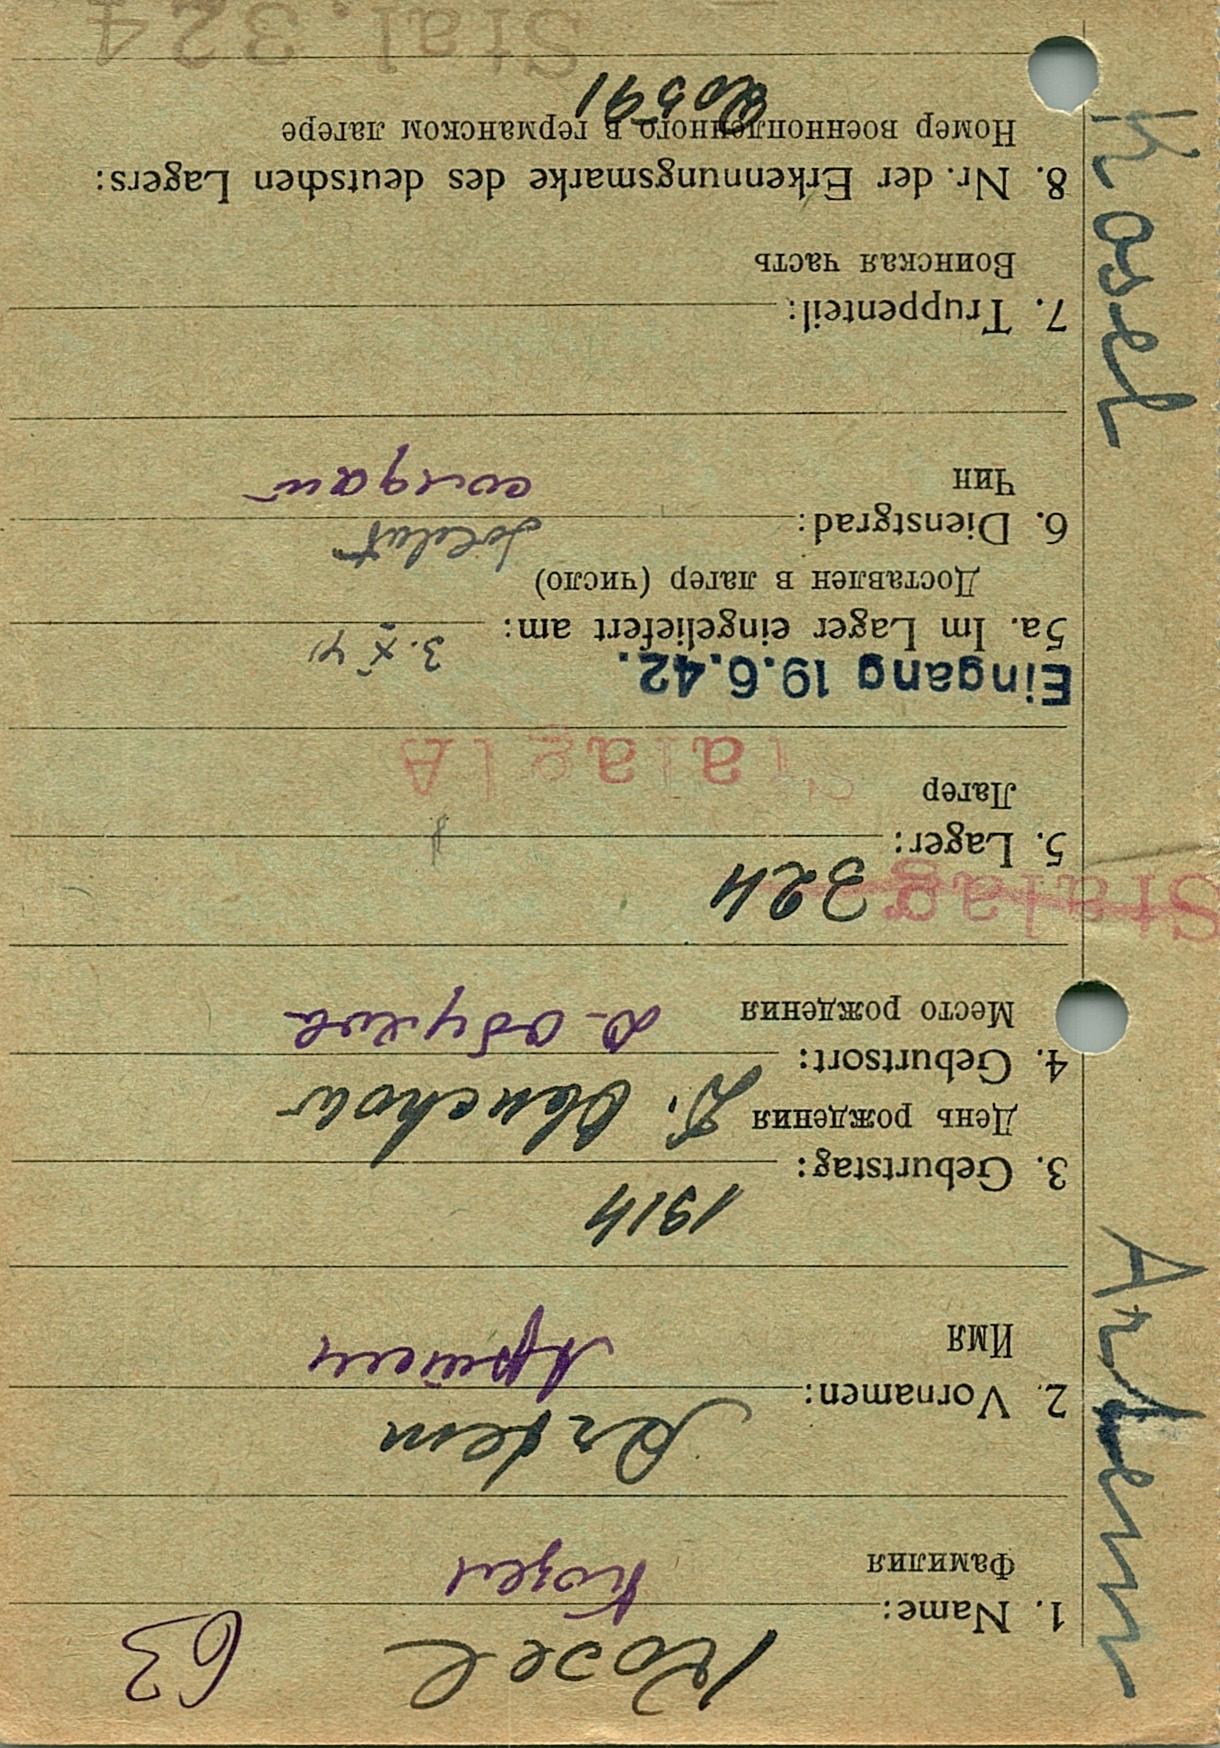 Kosel Artem
Kosel
63
1. Name:
Козел
Фамилия
Artem
2. Vornamen:
Артем
Имя
1914
3. Geburtstag:
День рождения
D. Obuchow
4. Geburtsort:
д. Обухов
Место рождения
Stalag 324
5. Lager:
Лагер
Stalag IA
Eingang 19.6.42.
5a. Im Lager eingeliefert am: 3.X 41
Доставлен в лагер (число)
Soldat
6. Dienstgrad:
солдат
Чин
7. Truppenteil:
Воинская часть
8. Nr. der Erkennungsmarke des deutschen Lagers:
Номер военнопленного в германском лагере
20591
Stal. 324